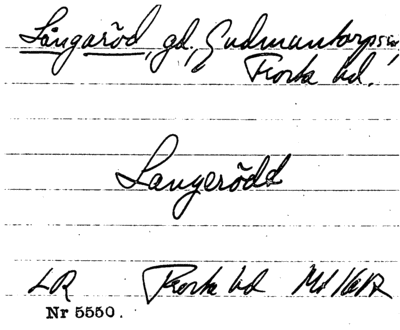 Långaröd, gd, Gudmuntorps sn,
Frosta hd.
Langerödd
LR Frosta hd Md 1612
Nr 5550.